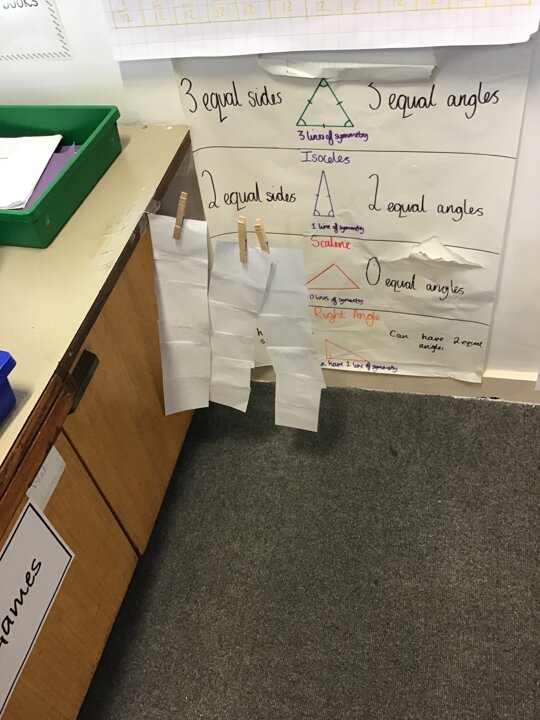 BOOKS
12 12 12 12 12 12 12
3 equal sides
3 equal angles
3 lines of symmetry
Isoceles
2 equal sides
2 equal angles
1 line of symmetry
Scalene
0 equal angles
0 lines of symmetry
Right Angle
Can have 2 equal
angles
have 1 line of symmetry
Games